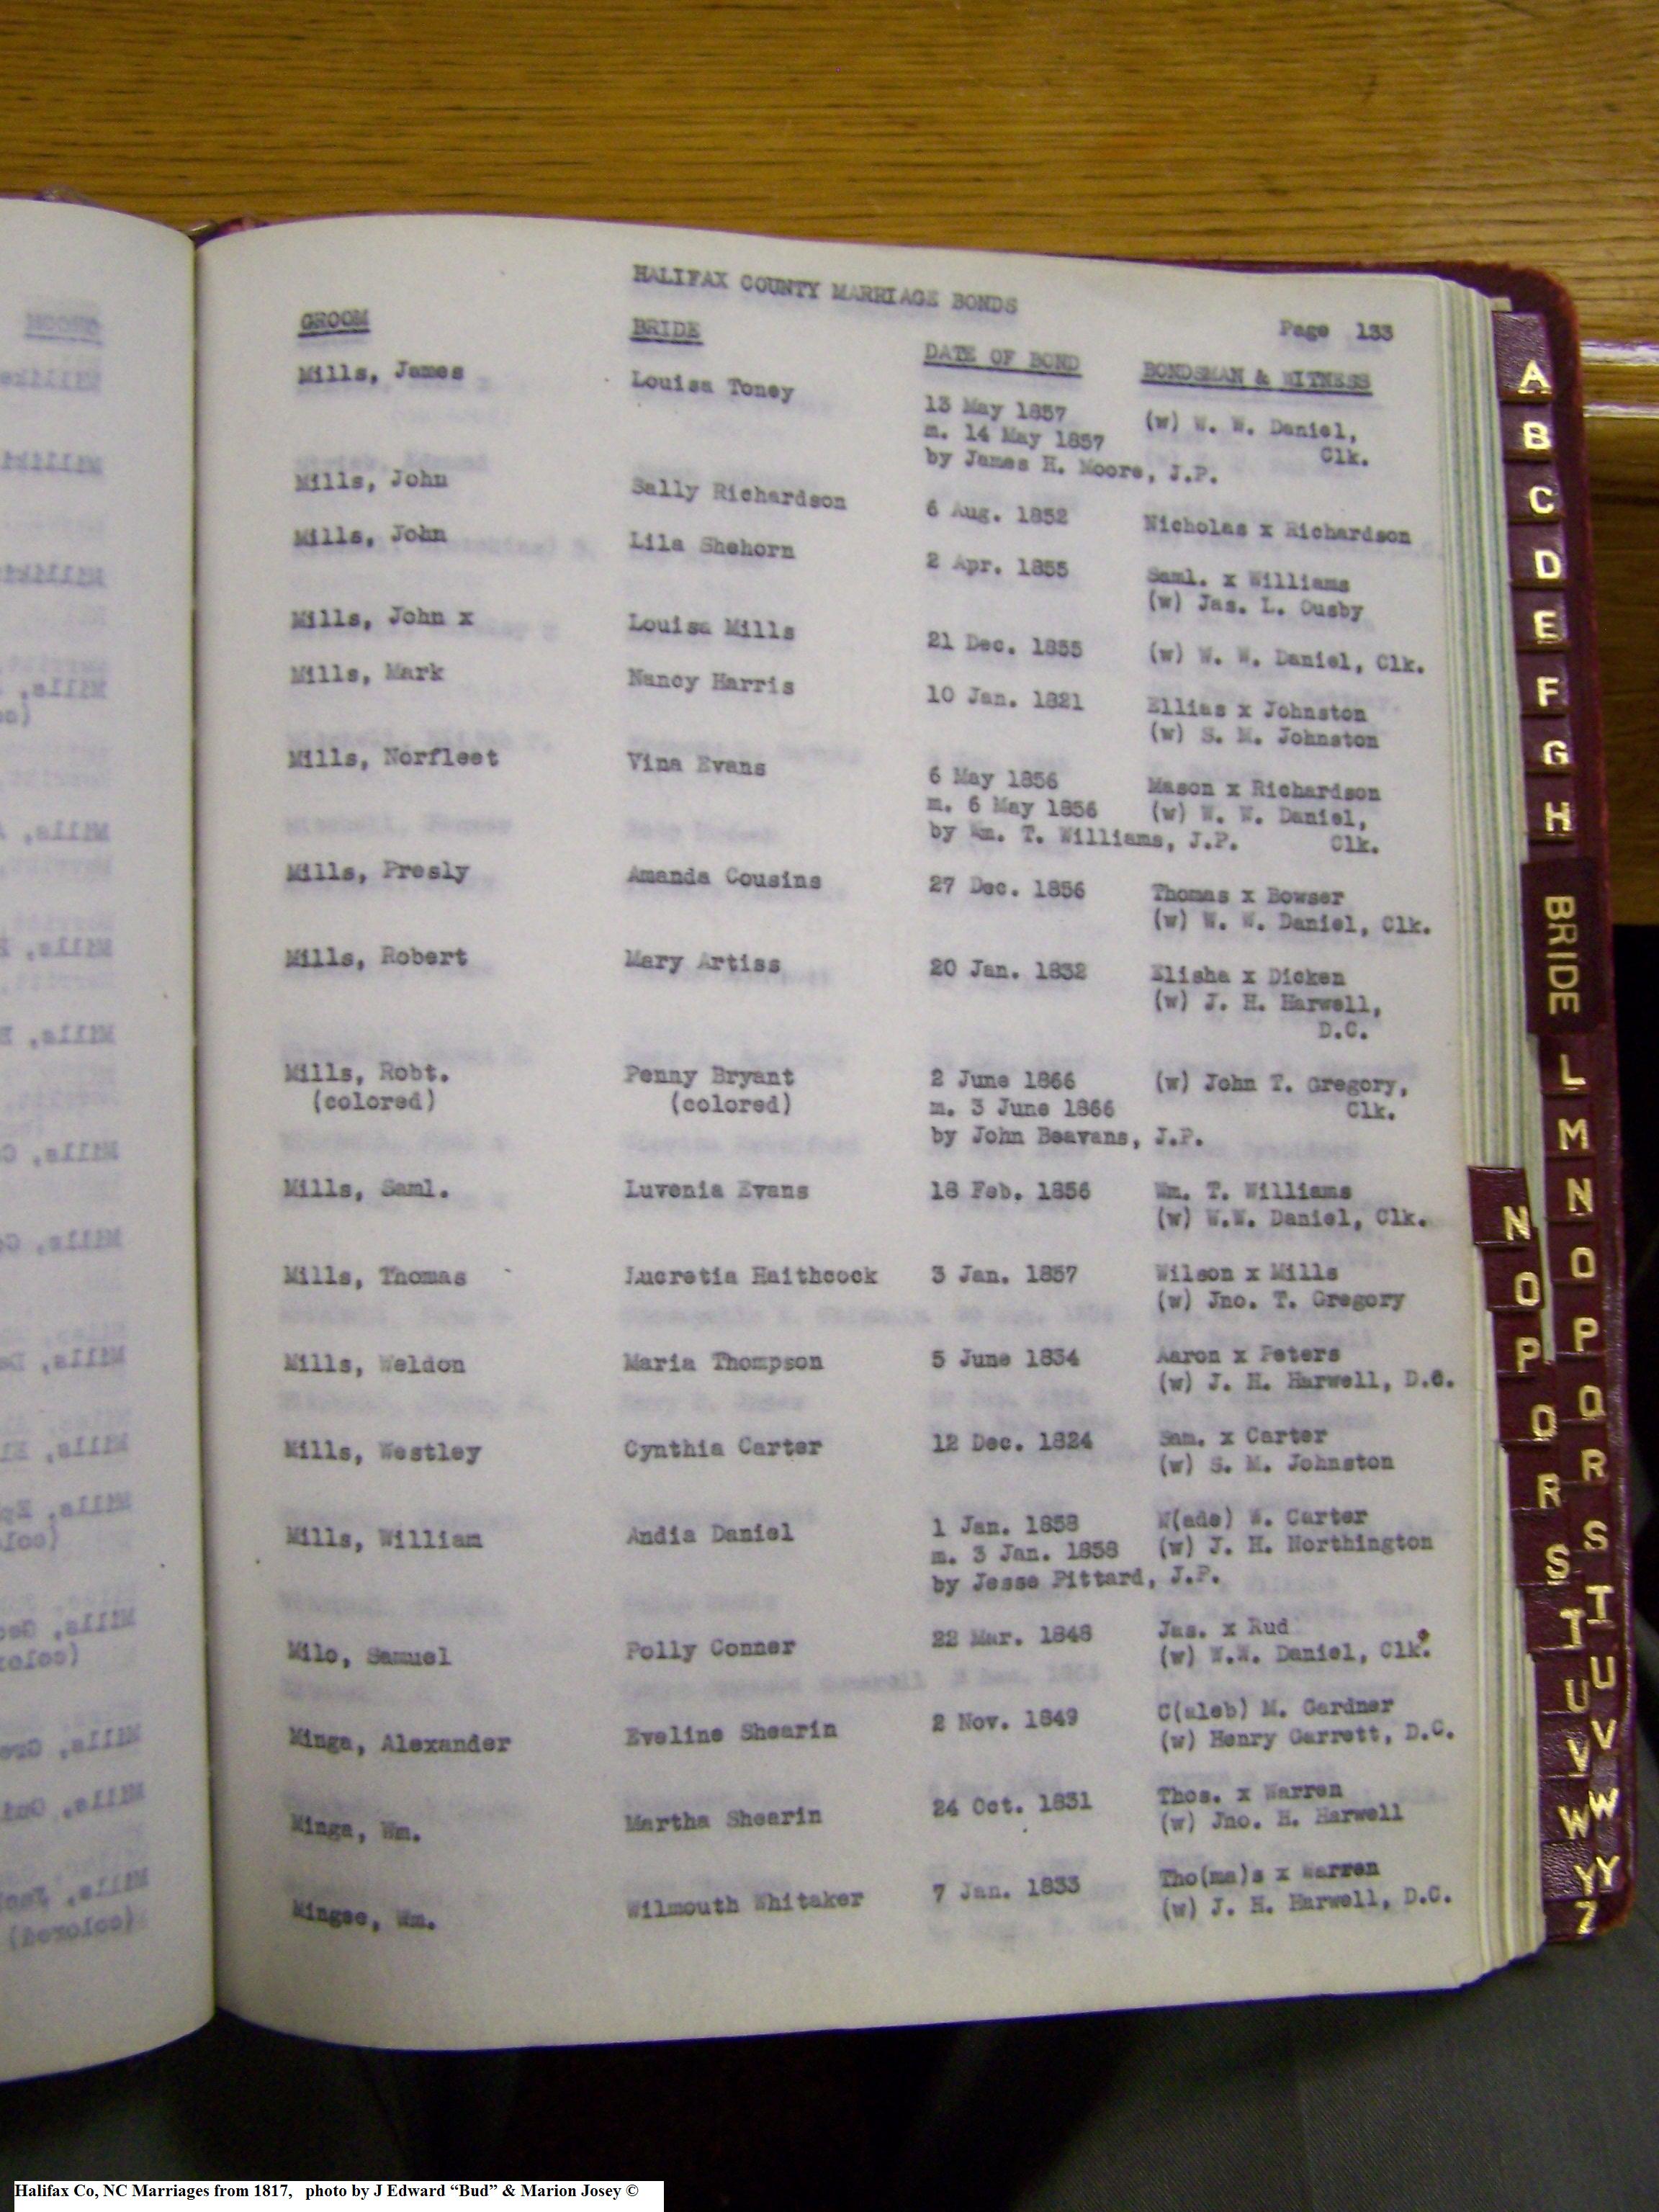 HALIFAX COUNTY MARRIAGE BONDS
Page 133
GROOM BRIDE DATE OF BOND BONDSMAN & WITNESS
Mills, James Louisa Toney 13 May 1857 (w) W. W. Daniel,
m. 14 May 1857 Clk.
by James H. Moore, J.P.
Mills, John Sally Richardson 6 Aug. 1852 Nicholas x Richardson
Mills, John Lila Shehorn 2 Apr. 1855 Saml. x Williams
(w) Jas. L. Ousby
Mills, John x Louisa Mills 21 Dec. 1855 (w) W. W. Daniel, Clk.
Mills, Mark Nancy Harris 10 Jan. 1821 Ellias x Johnston
(w) S. M. Johnston
Mills, Norfleet Vina Evans 6 May 1856 Mason x Richardson
m. 6 May 1856 (w) W. W. Daniel,
by Wm. T. Williams, J.P. Clk.
Mills, Presly Amanda Cousins 27 Dec. 1856 Thomas x Bowser
(w) W. W. Daniel, Clk.
Mills, Robert Mary Artiss 20 Jan. 1832 Elisha x Dicken
(w) J. H. Harwell,
D.C.
Mills, Robt. Penny Bryant 2 June 1866 (w) John T. Gregory,
(colored) (colored) m. 3 June 1866 Clk.
by John Beavans, J.P.
Mills, Saml. Luvenia Evans 18 Feb. 1856 Wm. T. Williams
(w) W.W. Daniel, Clk.
Mills, Thomas Lucretia Haithcock 3 Jan. 1857 Wilson x Mills
(w) Jno. T. Gregory
Mills, Weldon Maria Thompson 5 June 1834 Aaron x Peters
(w) J. H. Harwell, D.C.
Mills, Westley Cynthia Carter 12 Dec. 1824 Sam. x Carter
(w) S. M. Johnston
Mills, William Andia Daniel 1 Jan. 1858 W(ade) W. Carter
m. 3 Jan. 1858 (w) J. H. Northington
by Jesse Pittard, J.P.
Milo, Samuel Polly Conner 22 Mar. 1848 Jas. x Rud
(w) W.W. Daniel, Clk.
Minga, Alexander Eveline Shearin 2 Nov. 1849 C(aleb) M. Gardner
(w) Henry Garrett, D.C.
Minga, Wm. Martha Shearin 24 Oct. 1831 Thos. x Warren
(w) Jno. H. Harwell
Mingee, Wm. Wilmouth Whitaker 7 Jan. 1833 Tho(ma)s x Warren
(w) J. H. Harwell, D.C.
A
B
C
D
E
F
G
H
BRIDE
L
M
N
O
P
Q
R
S
T
U
V
W
Y
N
O
P
Q
R
S
T
U
V
W
Y
Z
Halifax Co, NC Marriages from 1817, photo by J Edward “Bud” & Marion Josey ©